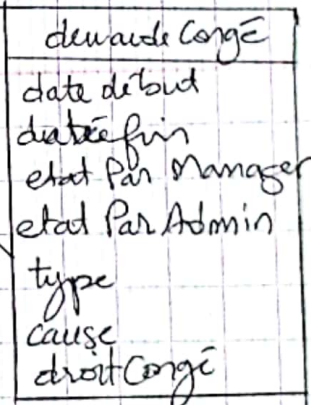 demande Congé
date début
date fin
etat Par Manager
etat Par Admin
type
cause
droit Congé